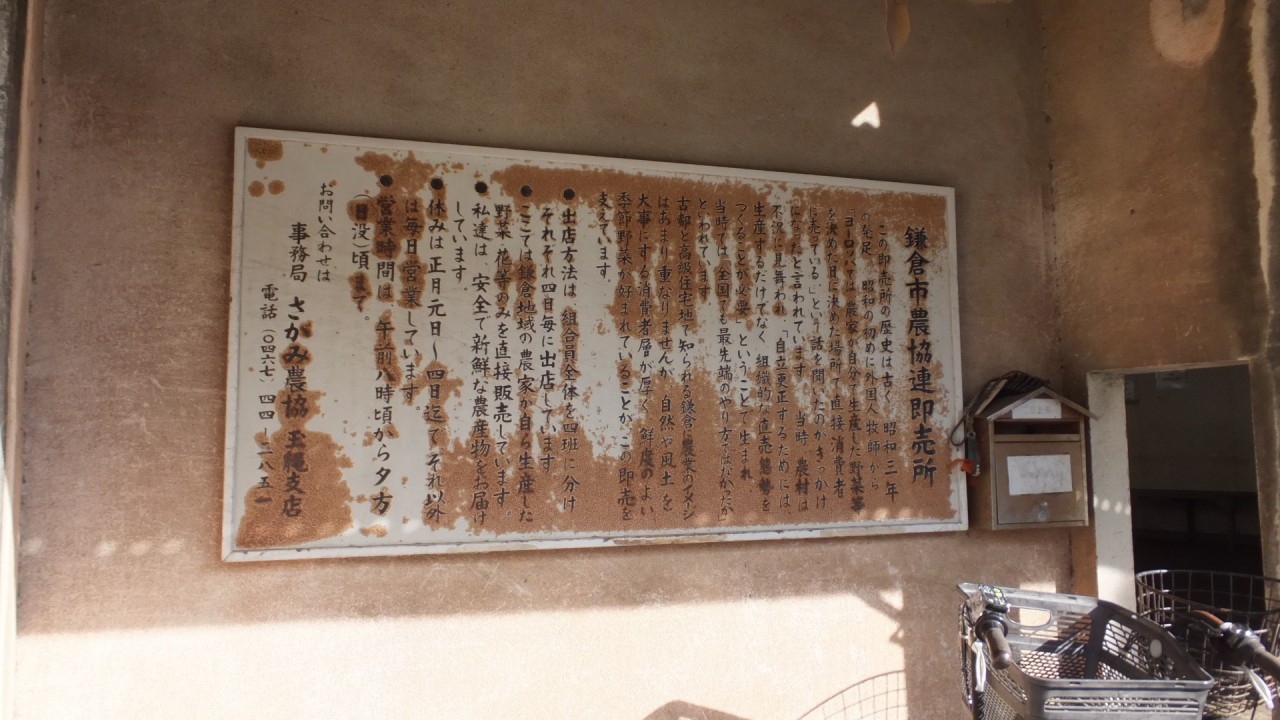 鎌倉市農協連即売所
この即売所の歴史は古く 昭和三年
の発足 昭和の初めに外国人牧師から
「ヨーロッパでは 農家が自分で生産した野菜等
を決めた日に決めた場所で直接消費者
に売っている」という話を聞いたのがきっかけ
になったと言われています 当時 農村は
不況に見舞われ 「自立更正するためには、
生産するだけでなく 組織的な直売態勢を
つくることが必要」ということで生まれ
当時では「全国でも最先端のやり方ではなかったか」
といわれています
古都と高級住宅地で知られる鎌倉に農業のイメージ
はあまり重なりませんが 自然や風土を
大事にする消費者層が厚く 鮮度のよい
季節野菜が好まれていることが この即売を
支えています。
● 出店方法は 組合員全体を四班に分け
それぞれ四日毎に出店しています
● ここでは鎌倉地域の農家が自ら生産した
野菜 花等のみを直接販売しています。
● 私達は 安全で新鮮な農産物をお届け
しています
● 休みは正月元日～四日迄でそれ以外
は毎日営業しています。
● 営業時間は 午前八時頃から夕方
(日没)頃まで。
お問い合わせは
事務局 さがみ農協 玉縄支店
電話 (〇四六七) 四四-二八五一